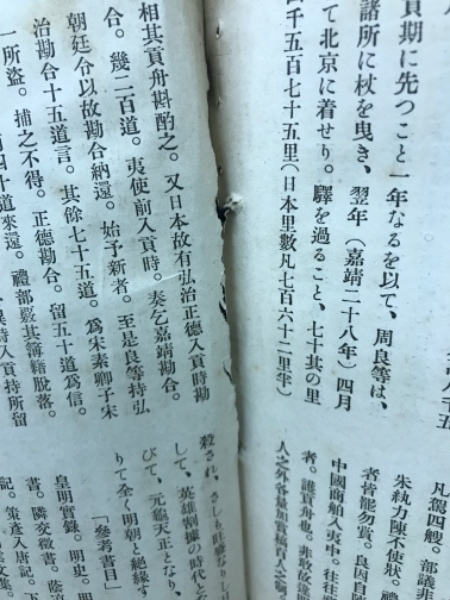 貢期に先つこと一年なるを以て、周良等は、
諸所に杖を曳き、翌年（嘉靖二十八年）四月
て北京に着せり。驛を過ること、七十其の里
千五百七十五里（日本里數凡七百六十二里半）
凡駕四艘。部議非
朱紈力陳不便狀。禮
者皆罷勿賞。良因自陳
中國商舶入夷中。往往
者。護貢舟也。非敢故違
相其貢舟斟酌之。又日本故有弘治正德入貢時勘
合。幾二百道。夷使前入貢時。奏乞嘉靖勘合。
朝廷令以故勘合納還。始予新者。至是良等持弘
治勘合十五道言。其餘七十五道。爲宋素卿子宋
一所盜。捕之不得。正德勘合。留五十道爲信。
四十道來還。禮部覈其簿籍脫落。
異時入貢持所留
殺され、さしも
して、英雄割據の時代と
びて、元龜天正となり、
りて全く明朝と絕緣す
「參考書目」
皇明實錄。明史。明
書。隣交徵書。蔭涼
記。策彥入唐記。下